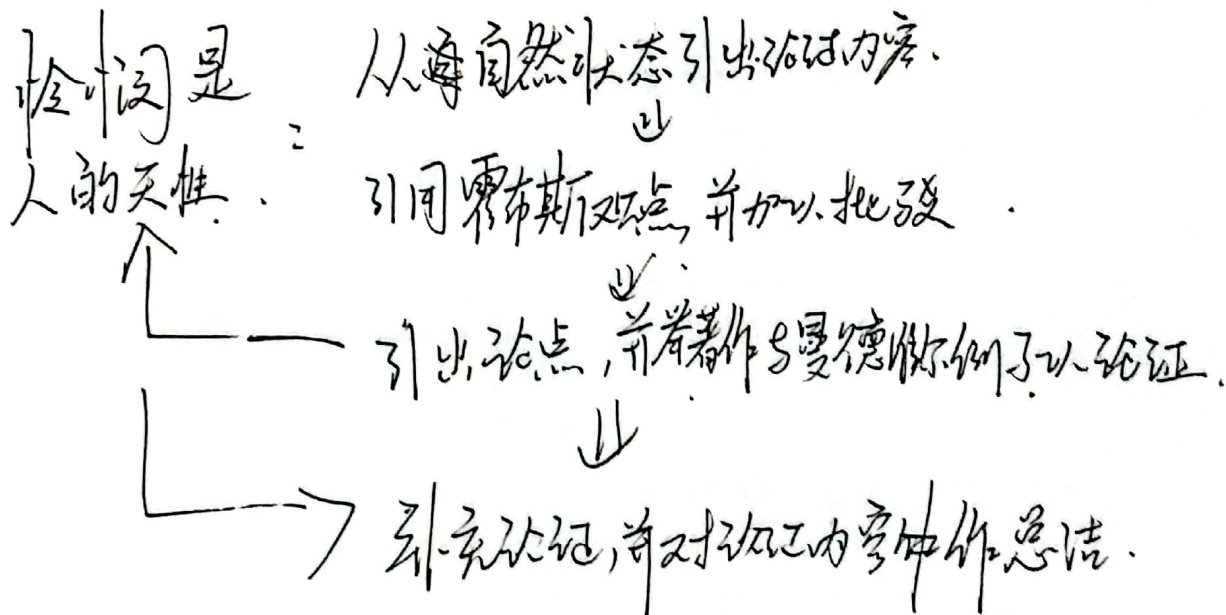 怜悯是
人的天性.:
从自然状态引出论述内容.
引用霍布斯观点,并加以批驳.
引出论点,并举著作与曼德维尔例子以论证.
补充论证,并对论证内容作总洁.